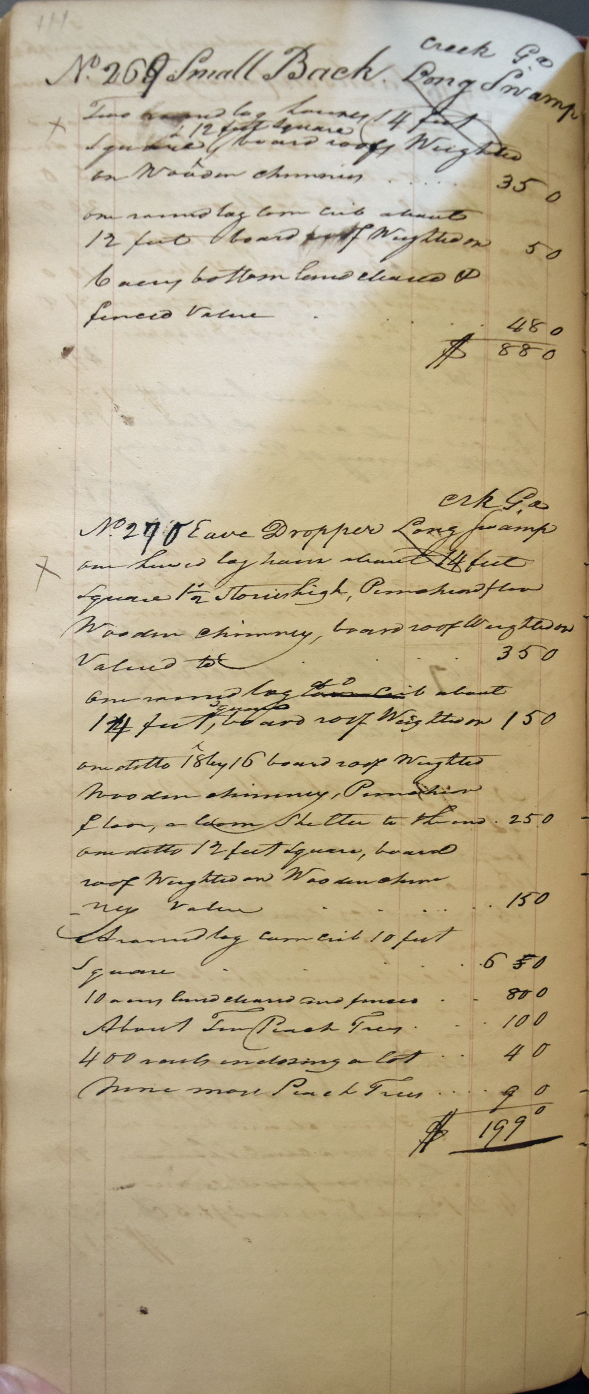 111
creek Ga
No. 269 Small Back. Long Swamp
Two round log houses, (14 feet
& 12 feet square
square, (board roofs Weighted
on Wooden chimnies . . . . . 35 0
one round log corn crib about
12 feet (board roof Weighted on 5 0
6 acres bottom land cleared &
fenced Value . . . . 48 0
$ 88 0
crk Ga
No. 270 Eave Dropper Long Swamp
one hewed log house about 14 feet
square 1 1/2 Stories high, Puncheon floor
Wooden chimney, board roof Weighted on
Valued to . . . . 35 0
one round log corn crib about
do
square
14 feet, board roof Weighted on 15 0
one ditto 18 by 16 board roof Weighted
Wooden chimney, Puncheon
floor, a Shelter to the end . 25 0
one ditto 12 feet square, board
roof Weighted on Wooden chim
-ney Value . . . . . . 15 0
A round log corn crib 10 feet
square . . . . . 6 50
10 acres land cleared and fenced . . 80 0
About Ten Peach Trees . . . 10 0
400 rails enclosing a lot . . 4 0
Nine more Peach Trees . . . . 9 0
$ 199 0